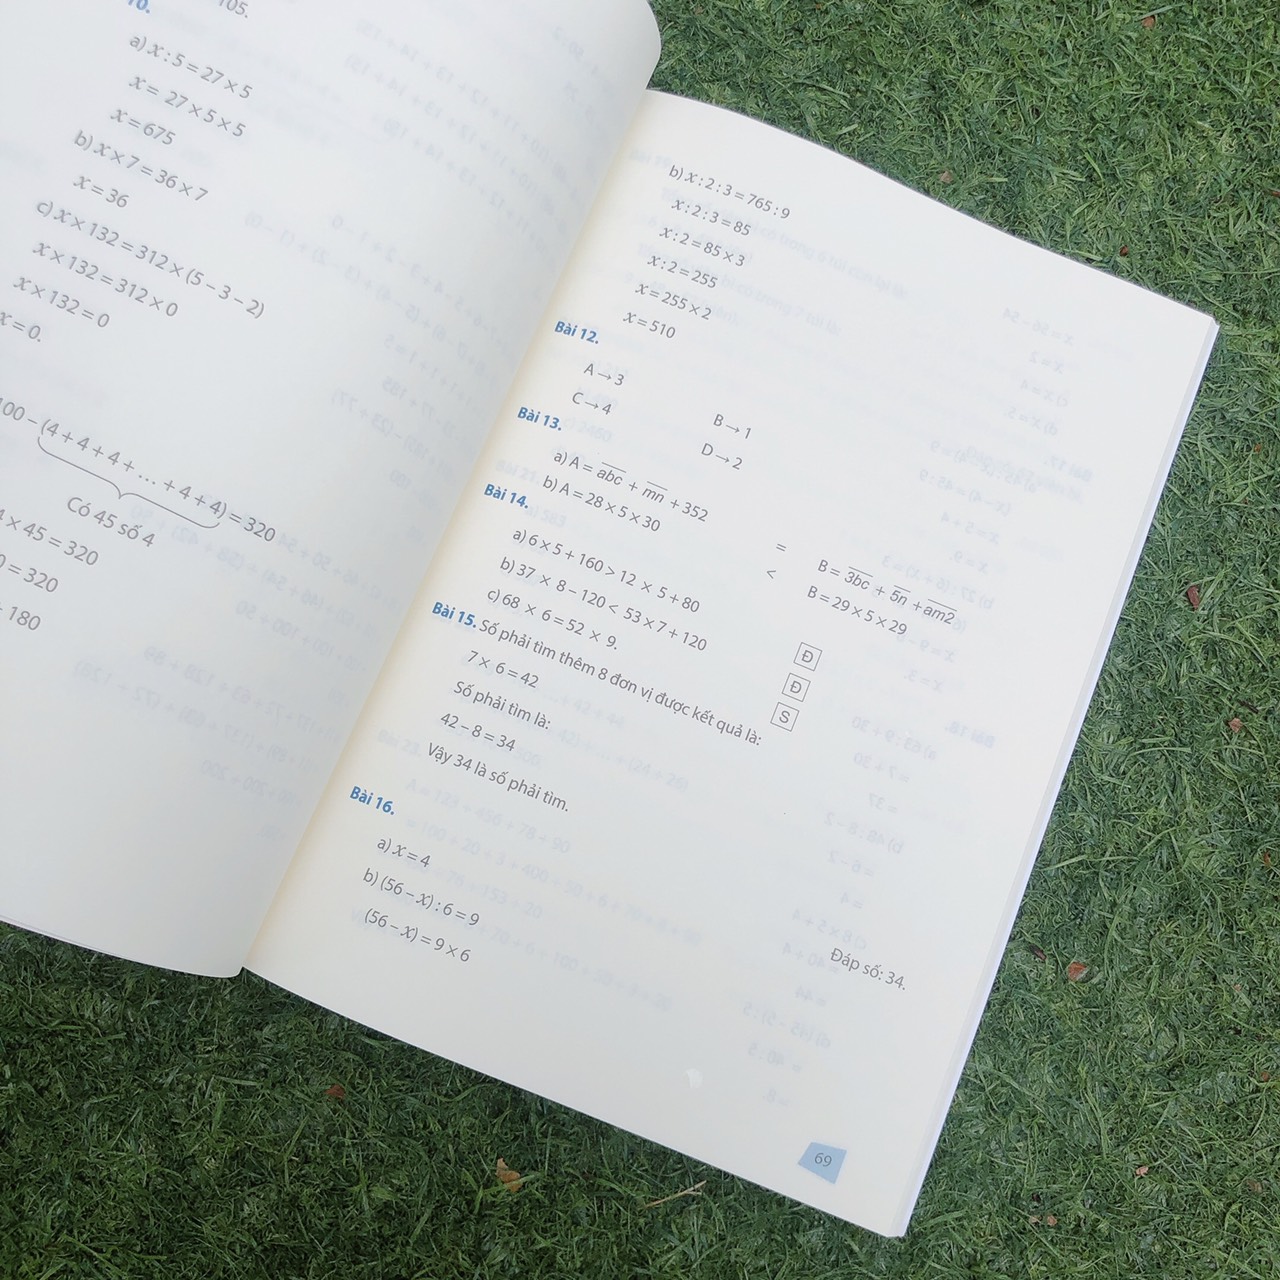 105.
10.
a) x : 5 = 27 × 5
x = 27 × 5 × 5
x = 675
b) x × 7 = 36 × 7
x = 36
c) x × 132 = 312 × (5 – 3 – 2)
x × 132 = 312 × 0
x × 132 = 0
x = 0.
100 – (4 + 4 + 4 + ... + 4 + 4) = 320
Có 45 số 4
× 45 = 320
= 320
180
b) x : 2 : 3 = 765 : 9
x : 2 : 3 = 85
x : 2 = 85 × 3
x : 2 = 255
x = 255 × 2
x = 510
Bài 12.
A → 3 B → 1
C → 4 D → 2
Bài 13.
a) A = abc + mn + 352 = B = 3bc + 5n + am2
b) A = 28 × 5 × 30 < B = 29 × 5 × 29
Bài 14.
a) 6 × 5 + 160 > 12 × 5 + 80 Đ
b) 37 × 8 – 120 < 53 × 7 + 120 Đ
c) 68 × 6 = 52 × 9. S
Bài 15. Số phải tìm thêm 8 đơn vị được kết quả là:
7 × 6 = 42
Số phải tìm là:
42 – 8 = 34
Vậy 34 là số phải tìm.
Đáp số: 34.
Bài 16.
a) x = 4
b) (56 – x) : 6 = 9
(56 – x) = 9 × 6
69